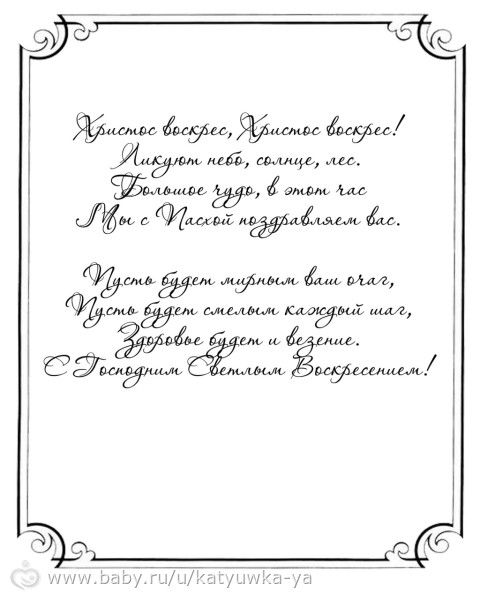 Христос воскрес, Христос воскрес!
Ликуют небо, солнце, лес.
Большое чудо, в этот час
Мы с Пасхой поздравляем вас.
Пусть будет мирным ваш очаг,
Пусть будет смелым каждый шаг,
Здоровье будет и везение.
С Господним Светлым Воскресением!
www.baby.ru/u/katyuwka-ya